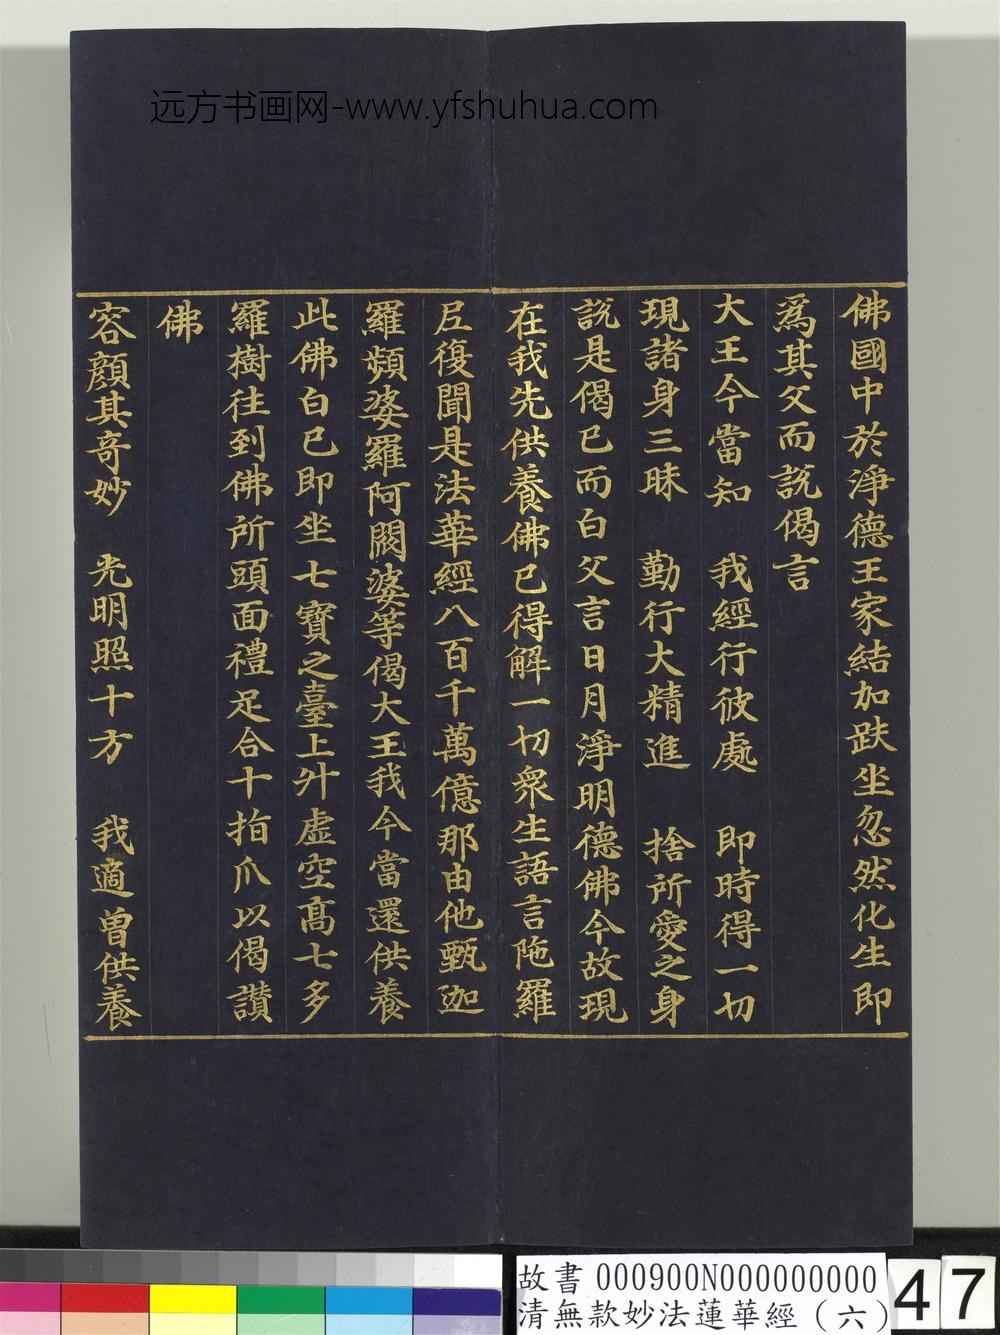 远方书画网-www.yfshuhua.com
佛國中於淨德王家結加趺坐忽然化生即
爲其父而說偈言
大王今當知 我經行彼處 即時得一切
現諸身三昧 勤行大精進 捨所愛之身
說是偈已而白父言日月淨明德佛今故現
在我先供養佛已得解一切眾生語言陁羅
尼復聞是法華經八百千萬億那由他甄迦
羅頻婆羅阿閦婆等偈大王我今當還供養
此佛白已即坐七寶之臺上升虛空髙七多
羅樹往到佛所頭面禮足合十指爪以偈讃
佛
容顏其奇妙 光明照十方 我適曽供養
故書 000900N000000000 47
清無款妙法蓮華經（六）